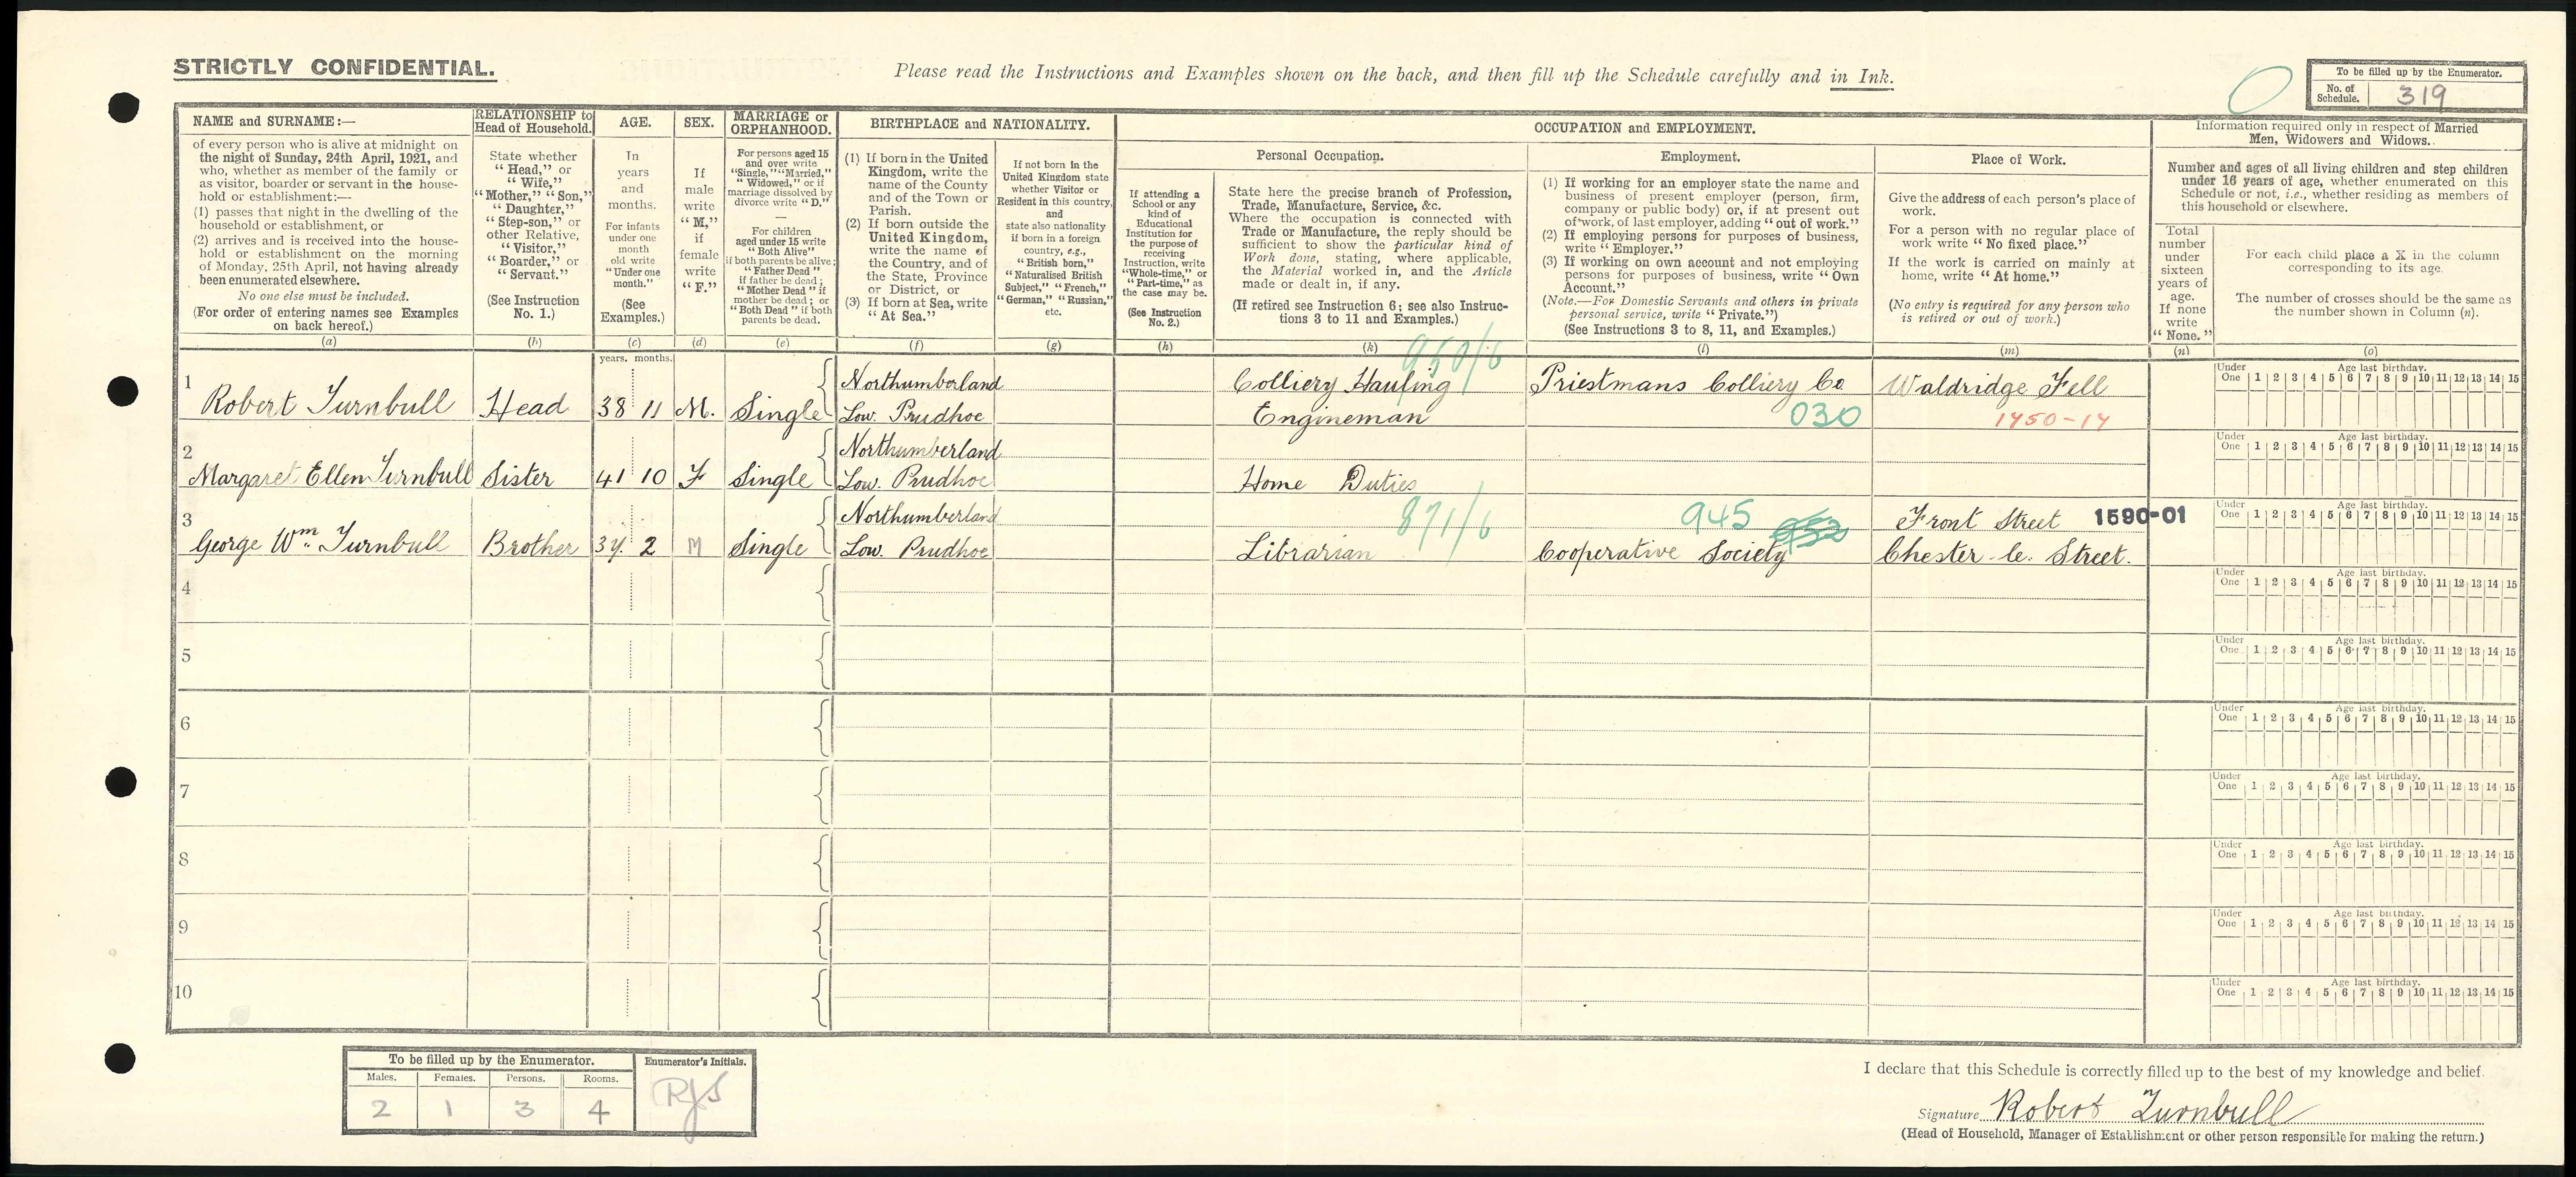 STRICTLY CONFIDENTIAL.
Please read the Instructions and Examples shown on the back, and then fill up the Schedule carefully and in Ink.
To be filled up by the Enumerator.
No. of Schedule. 319
NAME and SURNAME:—
of every person who is alive at midnight on
the night of Sunday, 24th April, 1921, and
who, whether as member of the family or
as visitor, boarder or servant in the house-
hold or establishment:—
(1) passes that night in the dwelling of the
household or establishment, or
(2) arrives and is received into the house-
hold or establishment on the morning
of Monday, 25th April, not having already
been enumerated elsewhere.
No one else must be included.
(For order of entering names see Examples
on back hereof.)
(a)
RELATIONSHIP to
Head of Household.
State whether
"Head," or
"Wife,"
"Mother," "Son,"
"Daughter,"
"Step-son," or
other Relative,
"Visitor,"
"Boarder," or
"Servant."
(See Instruction
No. 1.)
(b)
AGE.
In
years
and
months.
For infants
under one
month
old write
"Under one
month."
(See
Examples.)
(c)
SEX.
If
male
write
"M,"
if
female
write
"F."
(d)
MARRIAGE or
ORPHANHOOD.
For persons aged 15
and over write
"Single," "Married,"
"Widowed," or if
marriage dissolved by
divorce write "D."
—
For children
aged under 15 write
"Both Alive"
if both parents be alive;
"Father Dead"
if father be dead;
"Mother Dead" if
mother be dead; or
"Both Dead" if both
parents be dead.
(e)
BIRTHPLACE and NATIONALITY.
(1) If born in the United
Kingdom, write the
name of the County
and of the Town or
Parish.
(2) If born outside the
United Kingdom,
write the name of
the Country, and of
the State, Province
or District, or
(3) If born at Sea, write
"At Sea."
(f)
If not born in the
United Kingdom state
whether Visitor or
Resident in this country,
and
state also nationality
if born in a foreign
country, e.g.,
"British born,"
"Naturalised British
Subject," "French,"
"German," "Russian,"
etc.
(g)
OCCUPATION and EMPLOYMENT.
If attending a
School or any
kind of
Educational
Institution for
the purpose of
receiving
Instruction, write
"Whole-time," or
"Part-time," as
the case may be.
(See Instruction
No. 2.)
(h)
Personal Occupation.
State here the precise branch of Profession,
Trade, Manufacture, Service, &c.
Where the occupation is connected with
Trade or Manufacture, the reply should be
sufficient to show the particular kind of
Work done, stating, where applicable,
the Material worked in, and the Article
made or dealt in, if any.
(If retired see Instruction 6; see also Instruc-
tions 3 to 11 and Examples.)
(k)
Employment.
(1) If working for an employer state the name and
business of present employer (person, firm,
company or public body) or, if at present out
of work, of last employer, adding "out of work."
(2) If employing persons for purposes of business,
write "Employer."
(3) If working on own account and not employing
persons for purposes of business, write "Own
Account."
(Note.—For Domestic Servants and others in private
personal service, write "Private.")
(See Instructions 3 to 8, 11, and Examples.)
(l)
Place of Work.
Give the address of each person's place of
work.
For a person with no regular place of
work write "No fixed place."
If the work is carried on mainly at
home, write "At home."
(No entry is required for any person who
is retired or out of work.)
(m)
Information required only in respect of Married
Men, Widowers and Widows.
Number and ages of all living children and step children
under 16 years of age, whether enumerated on this
Schedule or not, i.e., whether residing as members of
this household or elsewhere.
Total
number
under
sixteen
years of
age.
If none
write
"None."
(n)
For each child place a X in the column
corresponding to its age.
The number of crosses should be the same as
the number shown in Column (n).
(o)
years. months.
1 Robert Turnbull Head 38 11 M. Single Northumberland Low. Prudhoe Colliery Hauling Engineman 950/6 Priestmans Colliery Co 030 Waldridge Fell 1450-14
Under One Age last birthday. 1 2 3 4 5 6 7 8 9 10 11 12 13 14 15
2 Margaret Ellen Turnbull Sister 41 10 F Single Northumberland Low. Prudhoe Home Duties
Under One Age last birthday. 1 2 3 4 5 6 7 8 9 10 11 12 13 14 15
3 George Wm Turnbull Brother 2 M Single Northumberland Low. Prudhoe Librarian 871/6 945 Cooperative Society Front Street 1590-01 Chester-le-Street.
Under One Age last birthday. 1 2 3 4 5 6 7 8 9 10 11 12 13 14 15
4
Under One Age last birthday. 1 2 3 4 5 6 7 8 9 10 11 12 13 14 15
5
Under One Age last birthday. 1 2 3 4 5 6 7 8 9 10 11 12 13 14 15
6
Under One Age last birthday. 1 2 3 4 5 6 7 8 9 10 11 12 13 14 15
7
Under One Age last birthday. 1 2 3 4 5 6 7 8 9 10 11 12 13 14 15
8
Under One Age last birthday. 1 2 3 4 5 6 7 8 9 10 11 12 13 14 15
9
Under One Age last birthday. 1 2 3 4 5 6 7 8 9 10 11 12 13 14 15
10
Under One Age last birthday. 1 2 3 4 5 6 7 8 9 10 11 12 13 14 15
To be filled up by the Enumerator.
Enumerator's Initials.
Males. Females. Persons. Rooms.
2 1 3 4 RJS
I declare that this Schedule is correctly filled up to the best of my knowledge and belief.
Signature Robert Turnbull
(Head of Household, Manager of Establishment or other person responsible for making the return.)